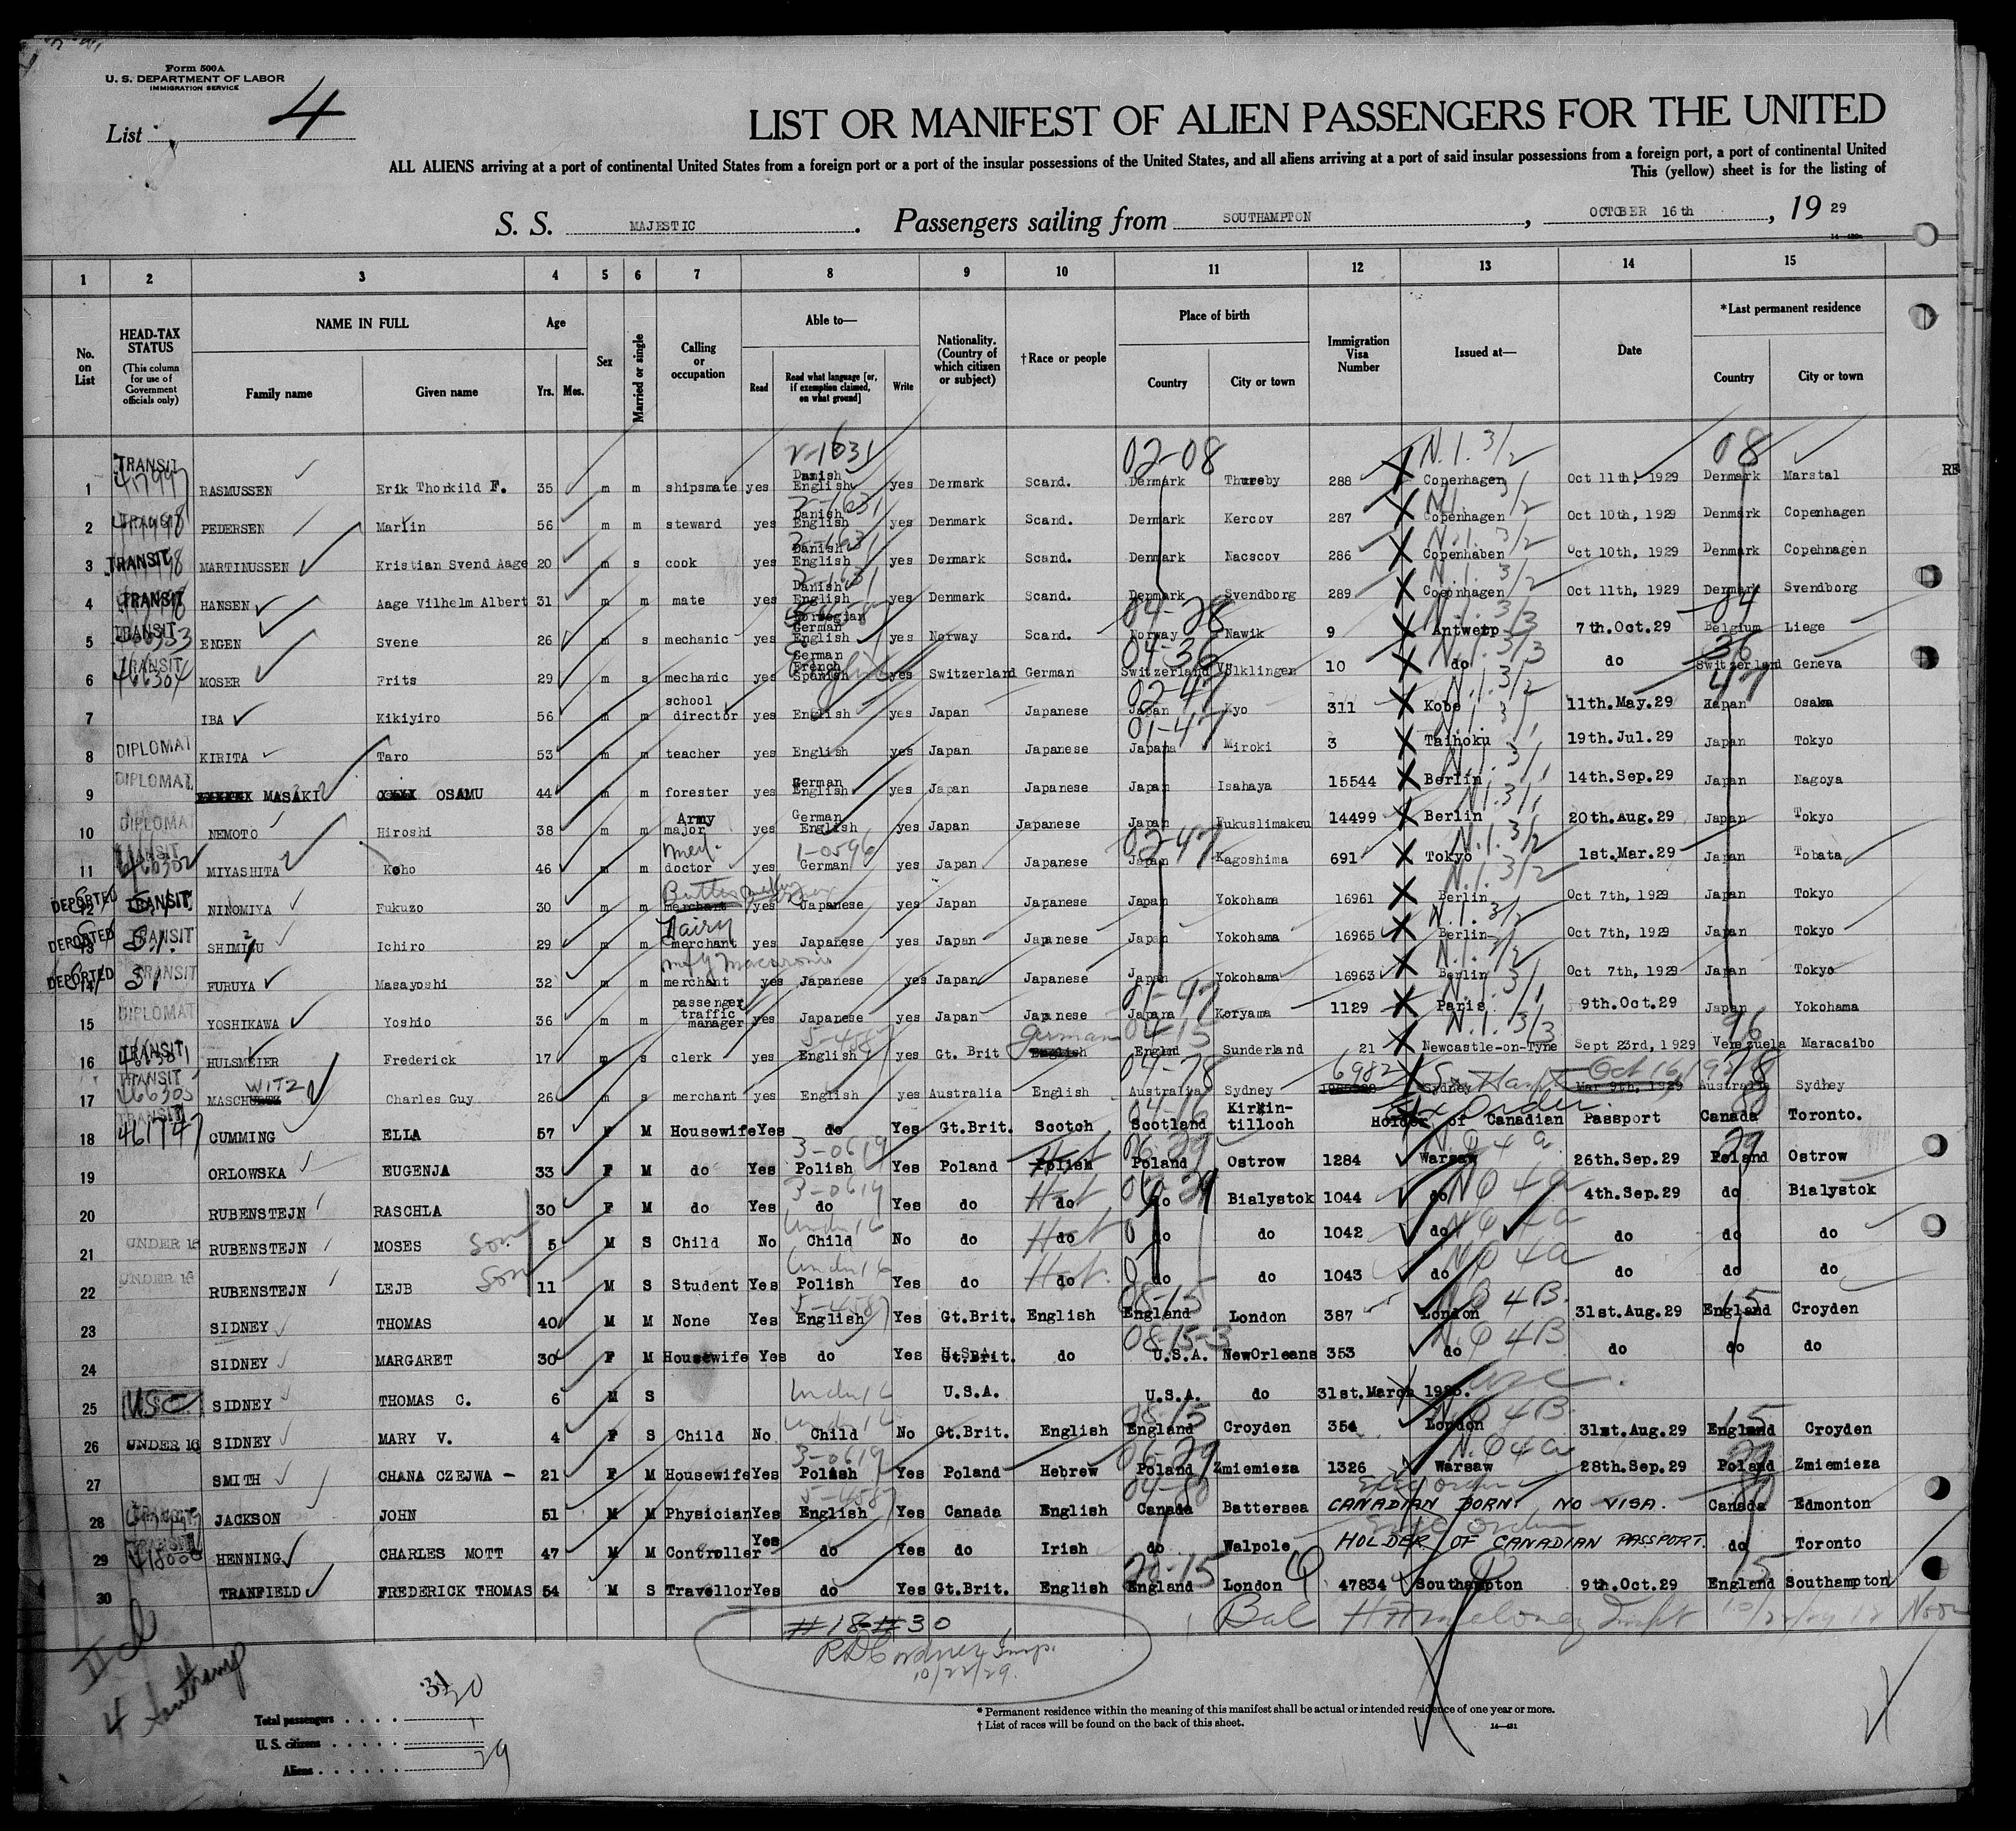 Form 500A
U. S. DEPARTMENT OF LABOR
IMMIGRATION SERVICE
List 4
LIST OR MANIFEST OF ALIEN PASSENGERS FOR THE UNITED
ALL ALIENS arriving at a port of continental United States from a foreign port or a port of the insular possessions of the United States, and all aliens arriving at a port of said insular possessions from a foreign port, a port of continental United
This (yellow) sheet is for the listing of
S. S. MAJESTIC. Passengers sailing from SOUTHAMPTON, OCTOBER 16th, 1929
1 2 3 4 5 6 7 8 9 10 11 12 13 14 15
No. on List
HEAD-TAX STATUS (This column for use of Government officials only)
NAME IN FULL Family name Given name
Age Yrs. Mos.
Sex
Married or single
Calling or occupation
Able to— Read Read what language [or, if exemption claimed, on what ground] Write
Nationality. (Country of which citizen or subject)
†Race or people
Place of birth Country City or town
Immigration Visa Number
Issued at—
Date
*Last permanent residence Country City or town
1 TRANSIT RASMUSSEN Erik Thorkild F. 35 m m shipsmate yes Danish English yes Denmark Scand. 02-08 Denmark Thureby 288 N.I. 3/2 Copenhagen Oct 11th, 1929 08 Denmark Marstal
2 TRANSIT PEDERSEN Martin 56 m m steward yes Danish English yes Denmark Scand. Denmark Kercov 287 N.I. 3/2 Copenhagen Oct 10th, 1929 Denmark Copenhagen
3 TRANSIT MARTINUSSEN Kristian Svend Aage 20 m s cook yes Danish English yes Denmark Scand. Denmark Nacscov 286 N.I. 3/2 Copenhaben Oct 10th, 1929 Denmark Copehnagen
4 TRANSIT HANSEN Aage Vilhelm Albert 31 m m mate yes Danish English yes Denmark Scand. Denmark Svendborg 289 N.I. 3/2 Copenhagen Oct 11th, 1929 Denmark Svendborg
5 TRANSIT ENGEN Svene 26 m s mechanic yes Norwegian German English yes Norway Scand. 04-28 Norway Nawik 9 N.I. 3/3 Antwerp 7th.Oct.29 04 Belgium Liege
6 TRANSIT 466304 MOSER Frits 29 m s mechanic yes German French Spanish yes Switzerland German 04-36 Switzerland Vulklingen 10 N.I. 3/3 do do 36 Switzerland Geneva
7 IBA Kikiyiro 56 m m school director yes English yes Japan Japanese 02-47 Japan Kyo 311 N.I. 3/2 Kobe 11th.May.29 47 Japan Osaka
8 DIPLOMAT KIRITA Taro 53 m m teacher yes English yes Japan Japanese 01-47 Japana Miroki 3 N.I. 3/1 Taihoku 19th.Jul.29 Japan Tokyo
9 DIPLOMAT MASAKI OSAMU 44 m m forester yes German English yes Japan Japanese Japan Isahaya 15544 N.I. 3/1 Berlin 14th.Sep.29 Japan Nagoya
10 DIPLOMAT NEMOTO Hiroshi 38 m m Army major yes German English yes Japan Japanese Japan Fukuslimakeu 14499 N.I. 3/1 Berlin 20th.Aug.29 Japan Tokyo
11 TRANSIT 466302 MIYASHITA Koho 46 m m med. doctor yes 1-0596 German yes Japan Japanese 02-47 Japan Kagoshima 691 N.I. 3/2 Tokyo 1st.Mar.29 Japan Tobata
DEPORTED 12 TRANSIT NINOMIYA Fukuzo 30 m m merchant yes Japanese yes Japan Japanese Japan Yokohama 16961 N.I. 3/2 Berlin Oct 7th, 1929 Japan Tokyo
DEPORTED 13 TRANSIT SHIMIZU Ichiro 29 m m Dairy merchant yes Japanese yes Japan Japanese Japan Yokohama 16965 N.I. 3/2 Berlin Oct 7th, 1929 Japan Tokyo
DEPORTED 14 TRANSIT FURUYA Masayoshi 32 m m mfg macaroni merchant yes Japanese yes Japan Japanese Japan Yokohama 16963 N.I. 3/2 Berlin Oct 7th, 1929 Japan Tokyo
15 DIPLOMAT YOSHIKAWA Yoshio 36 m m passenger traffic manager yes Japanese yes Japan Japanese 01-47 Japana Koryama 1129 N.I. 3/1 Paris 9th.Oct.29 Japan Yokohama
16 TRANSIT HULSMEIER Frederick 17 m s clerk yes 5-4587 English yes Gt. Brit German English 04-15 Englnd Sunderland 21 N.I. 3/3 Newcastle-on-Tyne Sept 23rd, 1929 96 Venezuela Maracaibo
17 TRANSIT 466305 MASCHWITZ Charles Guy 26 m s merchant yes English yes Australia English 04-78 Australia Sydney 6982 Sydney Southampt Mar 9th, 1929 Oct 16, 1929 78 Australia Sydney
18 TRANSIT 461147 CUMMING ELLA 57 F M Housewife Yes do Yes Gt.Brit. Scotch 04-16 Scotland Kirkin-tilloch Ex Order Holder of Canadian Passport 80 Canada Toronto.
19 ORLOWSKA EUGENJA 33 F M do Yes 3-0619 Polish Yes Poland Polish 06-29 Poland Ostrow 1284 N.Q 4a Warsaw 26th.Sep.29 29 Poland Ostrow
20 RUBENSTEJN RASCHLA 30 F M do Yes 3-0619 do Yes do do 06-29 do Bialystok 1044 NQ 4a do 4th.Sep.29 do Bialystok
21 UNDER 16 RUBENSTEJN MOSES Son 5 M S Child No Under 16 Child No do do do do 1042 NQ 4a do do do do
22 UNDER 16 RUBENSTEJN LEJB Son 11 M S Student Yes Under 16 Polish Yes do do do do 1043 NQ 4a do do do do
23 SIDNEY THOMAS 40 M M None Yes 5-4587 English Yes Gt.Brit. English 08-15 England London 387 NQ 4B. London 31st.Aug.29 15 England Croyden
24 SIDNEY MARGARET 30 F M Housewife Yes do Yes Gt.Brit. do 08-15-3 U.S.A. NewOrleans 353 N.Q 4B do do do do
25 USC SIDNEY THOMAS C. 6 M S Under 16 U.S.A. U.S.A. do 31st.March 1923. USC
26 UNDER 16 SIDNEY MARY V. 4 F S Child No Under 16 Child No Gt.Brit. English 08-15 England Croyden 354 NQ 4B. London 31st.Aug.29 15 England Croyden
27 SMITH CHANA CZEJWA - 21 F M Housewife Yes 3-0619 Polish Yes Poland Hebrew 06-29 Poland Zmiemieza 1326 N.Q 4a Warsaw 28th.Sep.29 29 Poland Zmiemieza
28 TRANSIT JACKSON JOHN 51 M M Physician Yes 5-4587 English Yes Canada English 04-80 Canada Battersea CANADIAN BORN NO VISA. 80 Canada Edmonton
29 TRANSIT HENNING CHARLES MOTT 47 M M Controller Yes do Yes do Irish do Walpole HOLDER OF CANADIAN PASSPORT. do Toronto
30 TRANFIELD FREDERICK THOMAS 54 M S Travellor Yes do Yes Gt.Brit. English 20-15 England London 47834 Southampton 9th.Oct.29 15 England Southampton
#18-#30
10/22/29.
10/22/29 12 Noon
4 Southamp
Total passengers 30
U. S. citizens 1
Aliens 29
* Permanent residence within the meaning of this manifest shall be actual or intended residence of one year or more.
† List of races will be found on the back of this sheet.
14—431